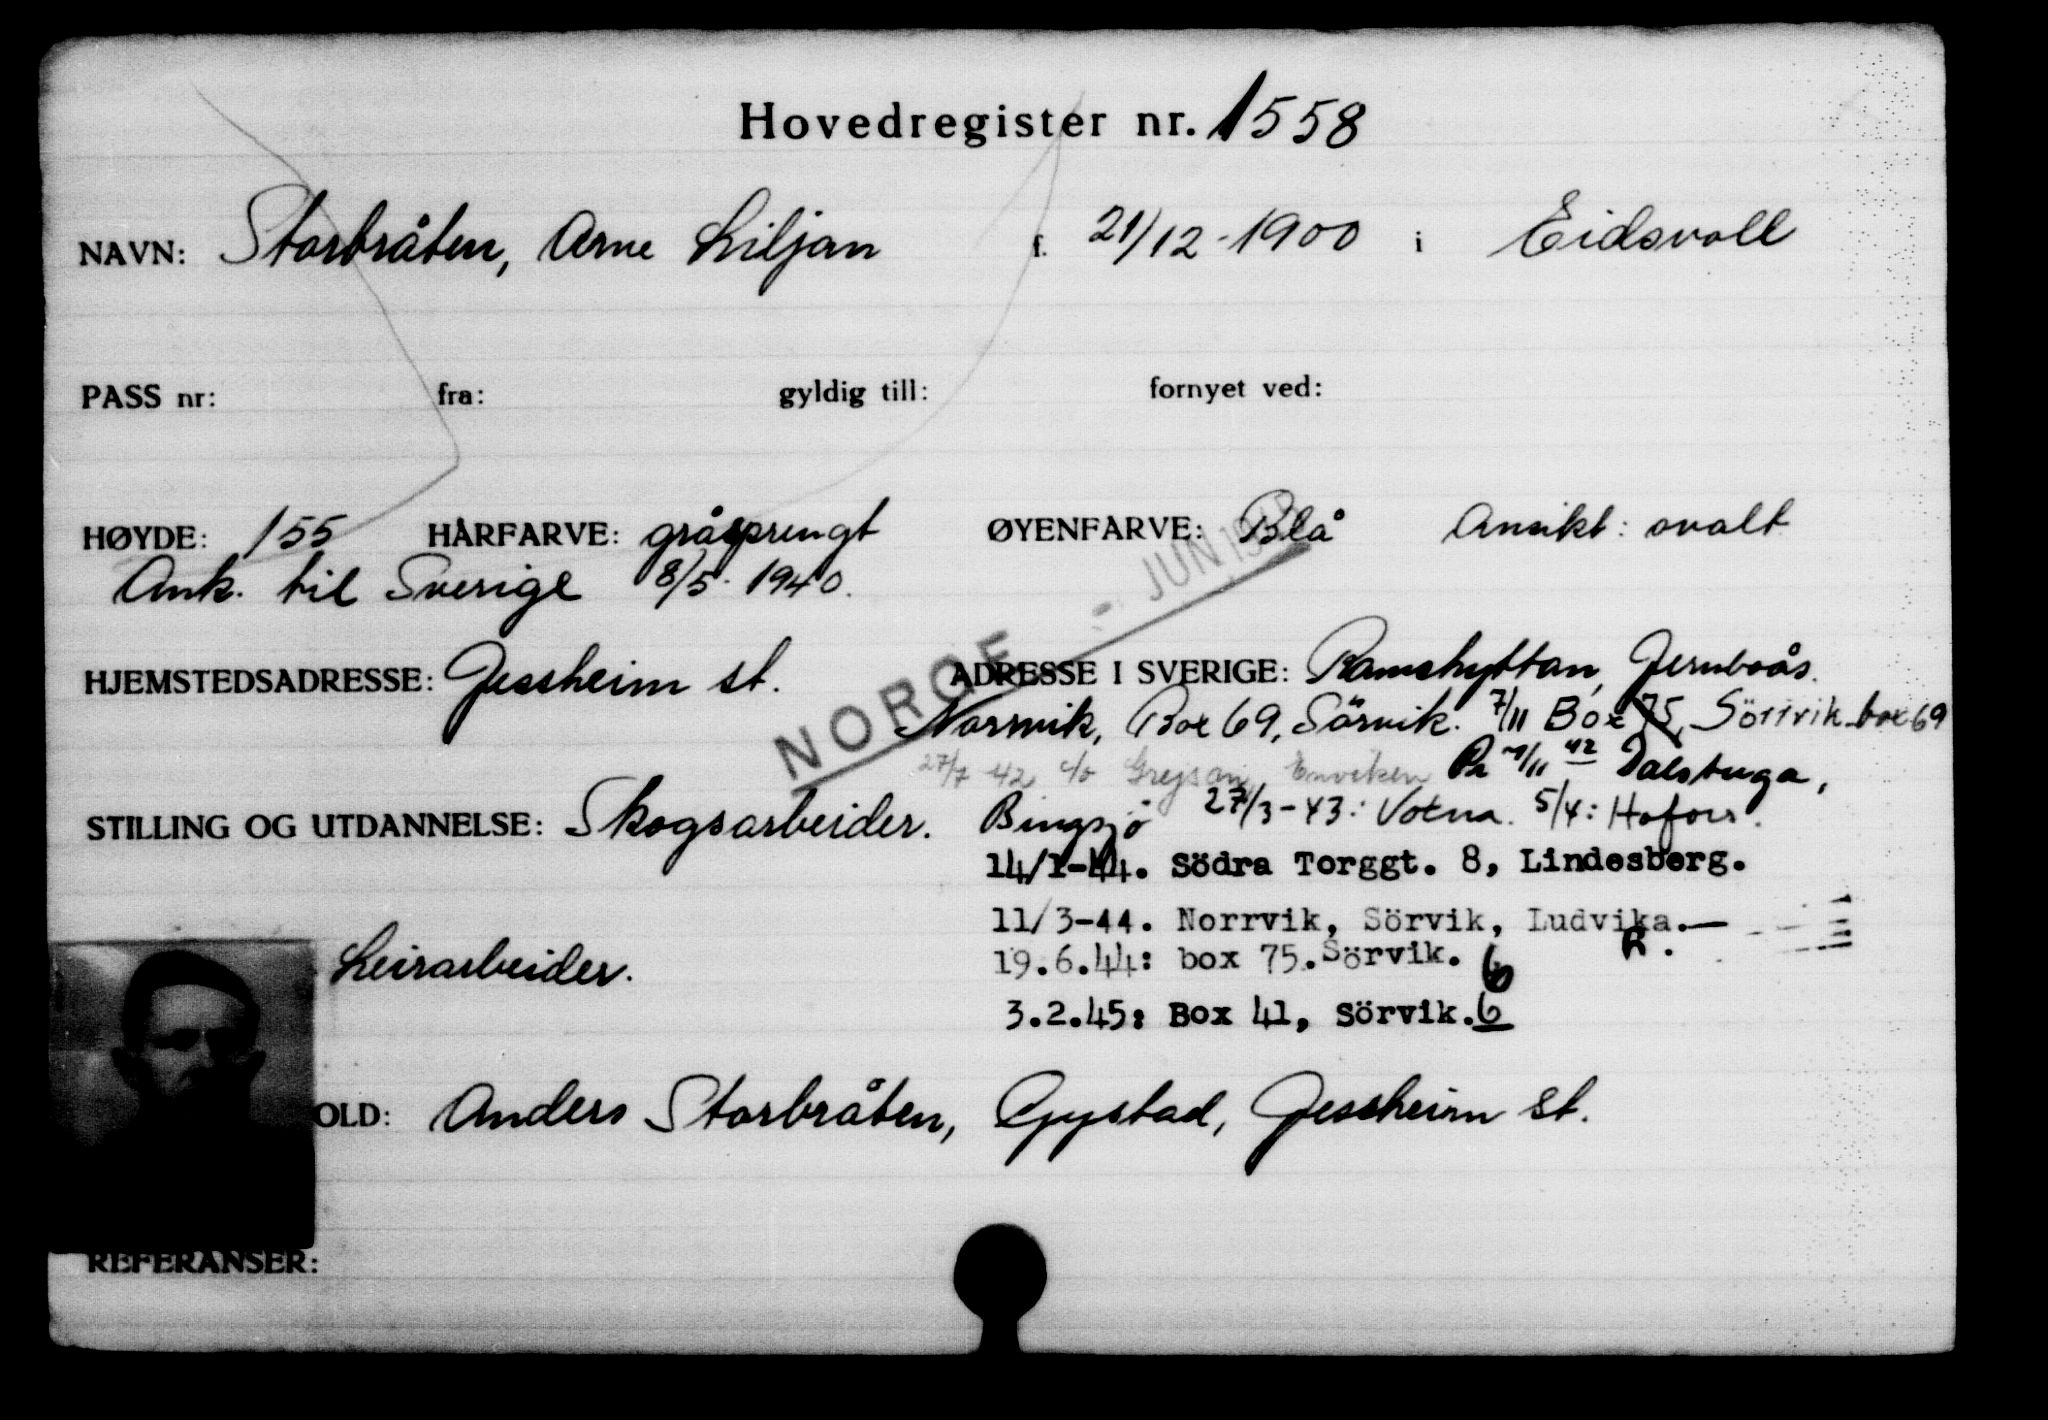 Hovedregister nr. 1558
NAVN: Storbråten, Arne Liljan f. 21/12-1900 i Eidsvoll
PASS nr: fra: gyldig till: fornyet ved:
HØYDE: 155 HÅRFARVE: gråsprengt ØYENFARVE: Blå Ansikt: ovalt
Ank. til Sverige 8/5-1940.
JUN 194
NORGE
HJEMSTEDSADRESSE: Jessheim st. ADRESSE I SVERIGE: Ramshyttan, Jernboås.
Norrvik, Box 69, Sörvik. 7/11 Box 75, Sörvik box 69
27/7 42 c/o Enviken 42 Dalstuga,
STILLING OG UTDANNELSE: Skogsarbeider. Bingsjö 27/3-43: Votna. 5/4: Hofors.
14/1-44. Södra Torggt. 8, Lindesberg.
11/3-44. Norrvik, Sörvik, Ludvika.—
Leirarbeider. 19.6.44: box 75. Sörvik. R.
3.2.45: Box 41, Sörvik. 6
OLD: Anders Storbråten, Gystad, Jessheim st.
REFERANSER: